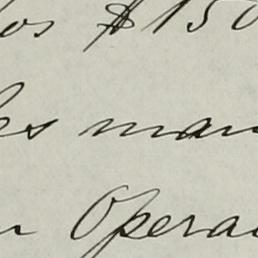 los $150
les man
n Opera